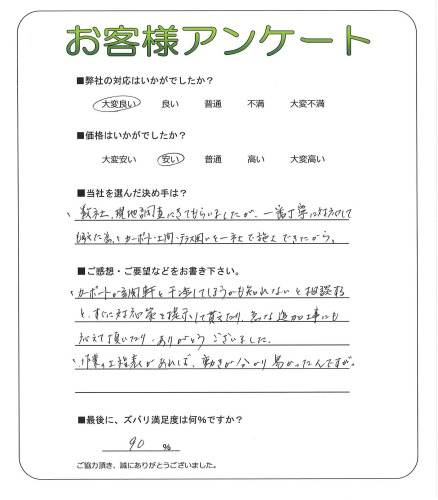 お客様アンケート
■弊社の対応はいかがでしたか？
大変良い 良い 普通 不満 大変不満
■価格はいかがでしたか？
大変安い 安い 普通 高い 大変高い
■当社を選んだ決め手は？
、数社、現地調査にきてもらいましたが、一番丁寧に対応して
カーポート・土間・テラス囲いを一社で施工できたから。
■ご感想・ご要望などをお書き下さい。
、カーポートが玄関軒と干渉してしまうかも知れないと相談する
と、すぐに対応策を提示して貰えたり、急な追加工事にも
応えて頂いたり、ありがとうございました。
、作業の工程表があれば、動きが分かり易かったんですが。
■最後に、ズバリ満足度は何％ですか？
90 %
ご協力頂き、誠にありがとうございました。